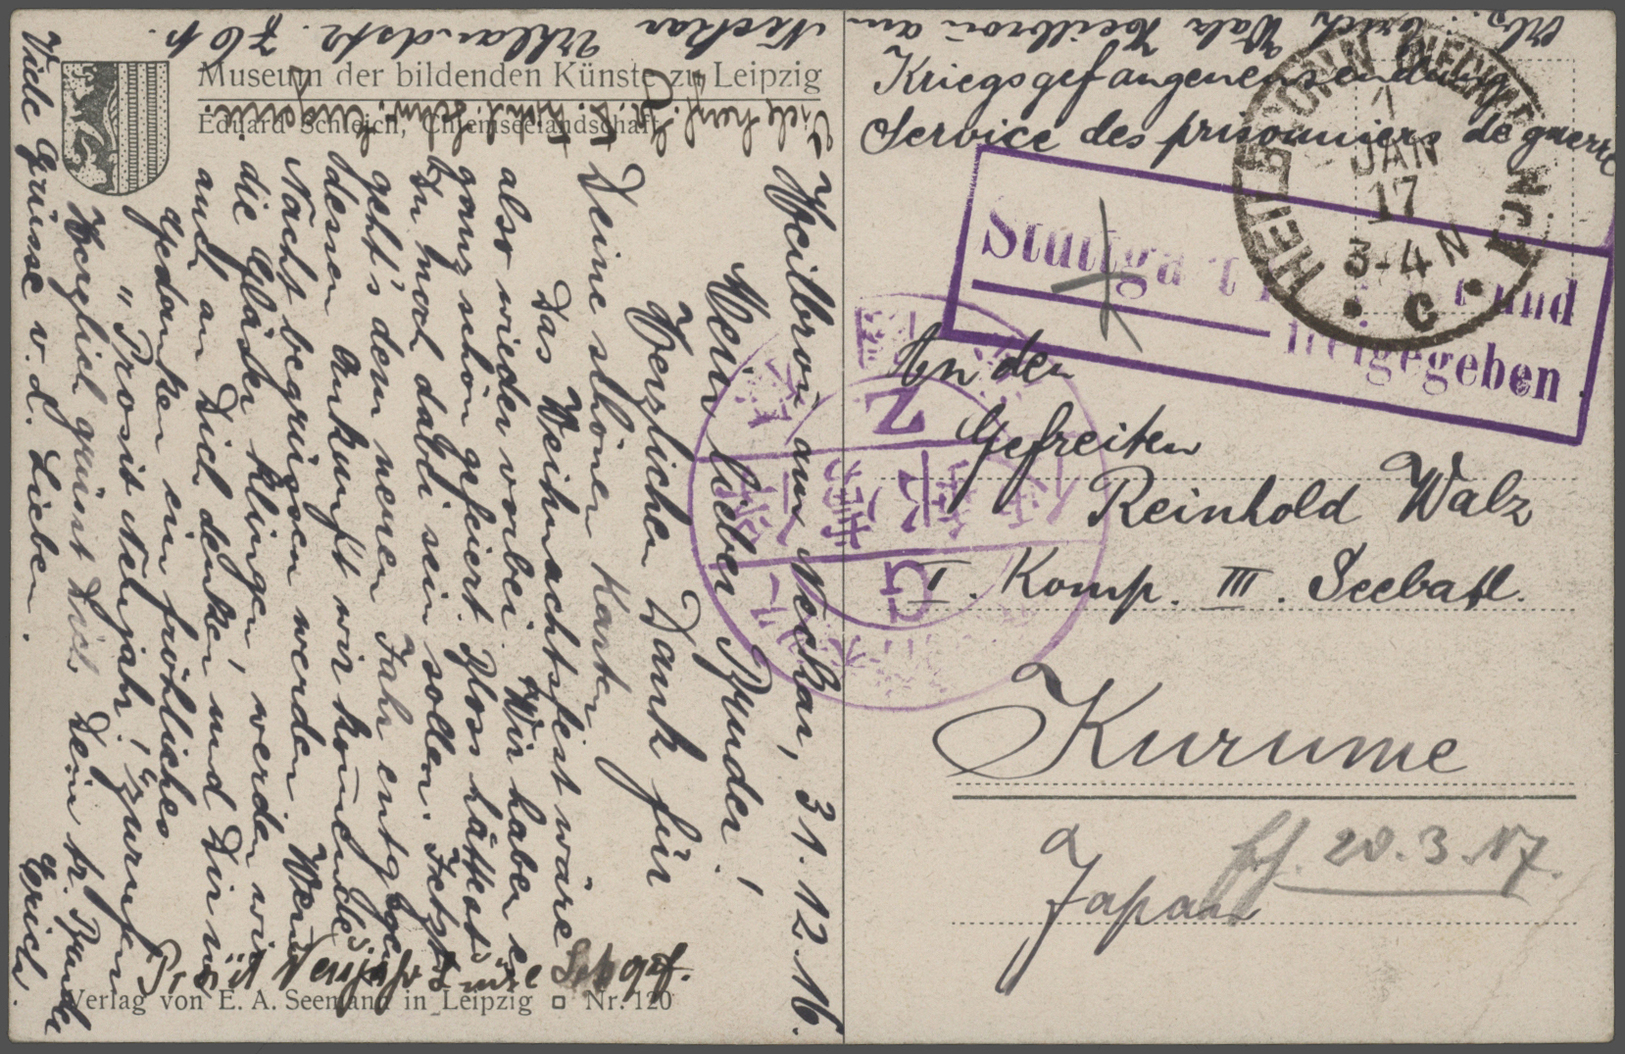 Museum der bildenden Künste zu Leipzig
Eduard Schleich, Chiemseelandschaft
Heilbronn am Neckar, 31.12.16.
Mein lieber Bruder!
Herzlichen Dank für
Deine schönen Karten
Das Weihnachtsfest wäre
also wieder vorbei. Wir haben es
ganz schön gefeiert. Bloss hättest
Du noch dabei sein sollen. Jetzt
geht's dem neuen Jahr entgegen
dessen Ankunft wir kommende
Nacht begrüssen werden. Wenn
die Gläser klingen, werden wir
auch an Dich denken und Dir in
Gedanken ein fröhliches
"Prosit Neujahr!" zurufen
Herzlich grüsst Dich Dein tr. Bruder
Erich.
Viele Grüsse v. d. Lieben.
Prosit Neujahr
Verlag von E. A. Seemann in Leipzig Nr. 120
Abs. Erich Walz Heilbronn am
Neckar Uhlandstr. 76
Kriegsgefangenensendung
Service des prisonniers de guerre
HEILBRONN NECKAR
1
JAN
17
3-4 N
C
Stuttgart und
freigegeben
Z
G
An den
Gefreiten
Reinhold Walz
I. Komp. III. Seebatl.
Kurume
Japan
20.3.17.